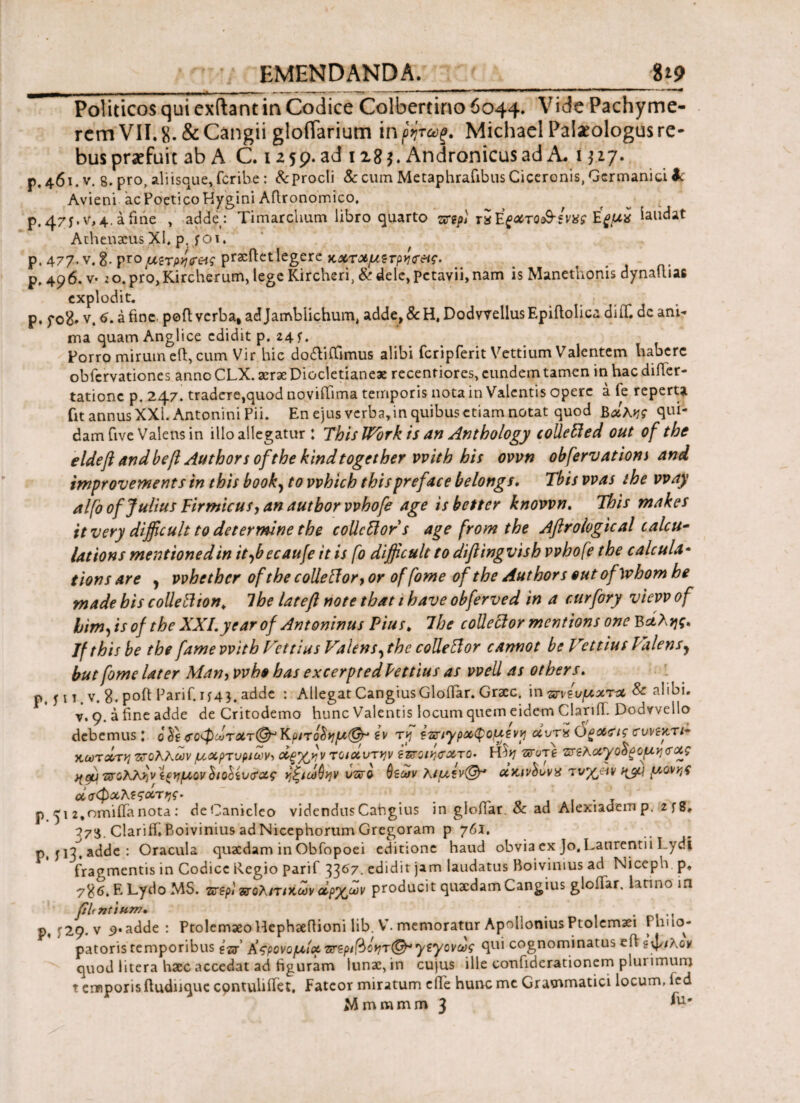 EMENDANDA. 819
Politicos qui exstant in Codice Colbertino 6044. Vide Pachyme-
rem VII. 8. & Cangii glossarium in ῥήτωρ. Michael Palæologus re-
bus præfuit ab A C. 1259. ad 1283. Andronicus ad A. 1327.
p. 461. v. 8. pro, aliisque, scribe: & procli & cum Metaphrasibus Ciceronis, Germanici &
Avieni ac Poetico Hygini Astronomico.
p. 475. v. 4. à fine , adde: Timarchum libro quarto περὶ τοῦ Ἐρατοσθένους Ἑρμοῦ laudat
Athenæus XI. p. 501.
p. 477. v. 8. pro μετρήσεις præstet legere καταμετρήσεις.
p. 496. v. 20. pro, Kircherum, lege Kircheri, & dele, Petavii, nam is Manethonis dynastias
explodit.
p. 508. v. 6. à fine. post verba, ad Jamblichum, adde, & H. Dodvvellus Epistolica diss. de ani-
ma quam Anglice edidit p. 245.
Porro mirum est, cum Vir hic doctissimus alibi scripserit Vettium Valentem habere
observationes anno CLX. æræ Diocletianeæ recentiores, eundem tamen in hac disser-
tatione p. 247. tradere, quod novissima temporis nota in Valentis opere à se reperta
sit annus XXI. Antonini Pii. En ejus verba, in quibus etiam notat quod Βάλης qui-
dam sive Valens in illo allegatur: This Work is an Anthology collected out of the
eldest and best Authors of the kind together vvith his ovvn observations and
improvements in this book, to vvhich this preface belongs. This vvas the vvay
also of Julius Firmicus, an author vvhose age is better knovvn. This makes
it very difficult to determine the collector's age from the Astrological calcu-
lations mentioned in it, because it is so difficult to distingvish vvhose the calcula-
tions are , vvhether of the collector, or of some of the Authors out of whom he
made his collection. The latest note that i have observed in a cursory vievv of
him, is of the XXI. year of Antoninus Pius. The collector mentions one Βάλης.
If this be the same vvith Vettius Valens, the collector cannot be Vettius Valens,
but some later Man, vvho has excerpted Vettius as vvell as others.
p. 511. v. 8. post Paris. 1543. adde : Allegat Cangius Glossar. Græc. in πνεύματα & alibi.
v. 9. à fine adde de Critodemo hunc Valentis locum quem eidem Clariss. Dodvvello
debemus: ὁ δὲ σοφώτατος Κριτόδημος ἐν τῇ ἐπιγραφομένῃ αὐτοῦ Ὁράσις συνεκτι-
κωτάτῃ πολλῶν μαρτυριῶν, ἀρχὴν τοιαύτην ἐποιήσατο. Ἤδη ποτὲ πελαγοδρομήσας
καὶ πολλὴν ἔρημον διοδεύσας ἠξιώθην ὑπὸ θεῶν λιμένος ἀκινδύνου τυχεῖν καὶ μονῆς
ἀσφαλεστάτης.
p. 512, omissa nota: de Canicleo videndus Cangius in glossar. & ad Alexiadem p. 258.
378. Clariss. Boivinius ad Nicephorum Gregoram p 761.
p. 513. adde : Oracula quædam in Obsopoei editione haud obvia ex Jo. Laurentii Lydi
fragmentis in Codice Regio Paris 3367. edidit jam laudatus Boivinius ad Niceph. p.
786. E Lydo MS. περὶ πολιτικῶν ἀρχῶν producit quædam Cangius glossar. latino in
silentium.
p. 529. v 9. adde : Ptolemæo Hephæstioni lib. V. memoratur Apollonius Ptolemæi Philo-
patoris temporibus ἐπ' ἀστρονομίᾳ περιβόητος γεγονὼς qui cognominatus est ἐψιλόν
quod litera hæc accedat ad figuram lunæ, in cujus ille considerationem plurimum
temporis studiique contulisset. Fateor miratum esse hunc me Grammatici locum, sed
Mmmmm 3 su-